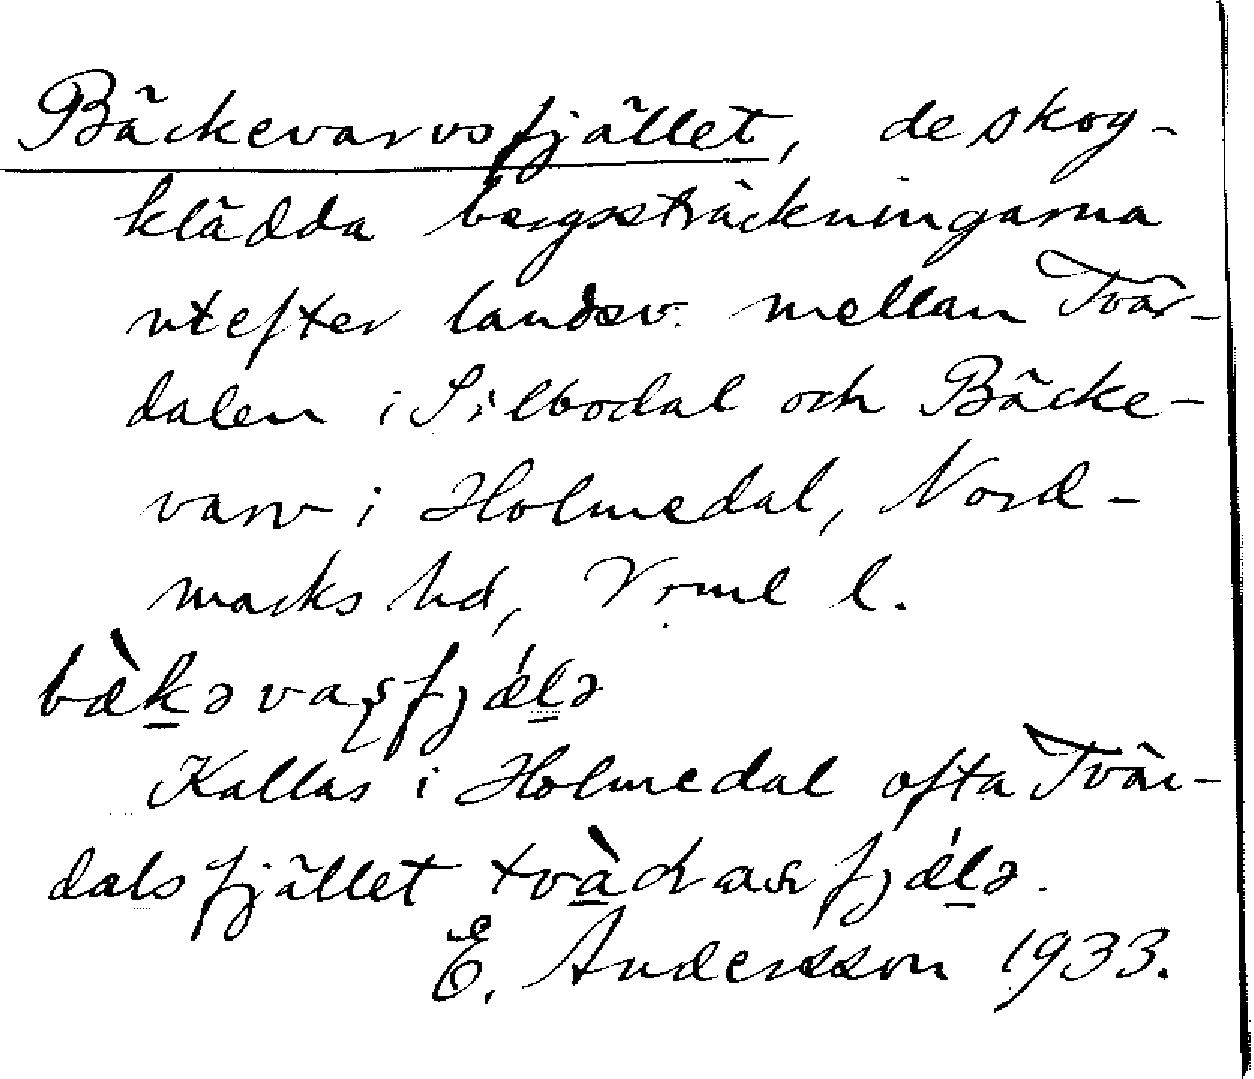 Bäckevarvsfjället, de skog-
klädda bergssträckningarna
utefter landsv. mellan Tvär-
dalen i Silbodal och Bäcke-
varv i Holmedal, Nord-
marks hd, Vrml l.
bæ̀k̠əvaʂfjǽl̠ə
Kallas i Holmedal ofta Tvär-
dalsfjället
E. Andersson 1933.